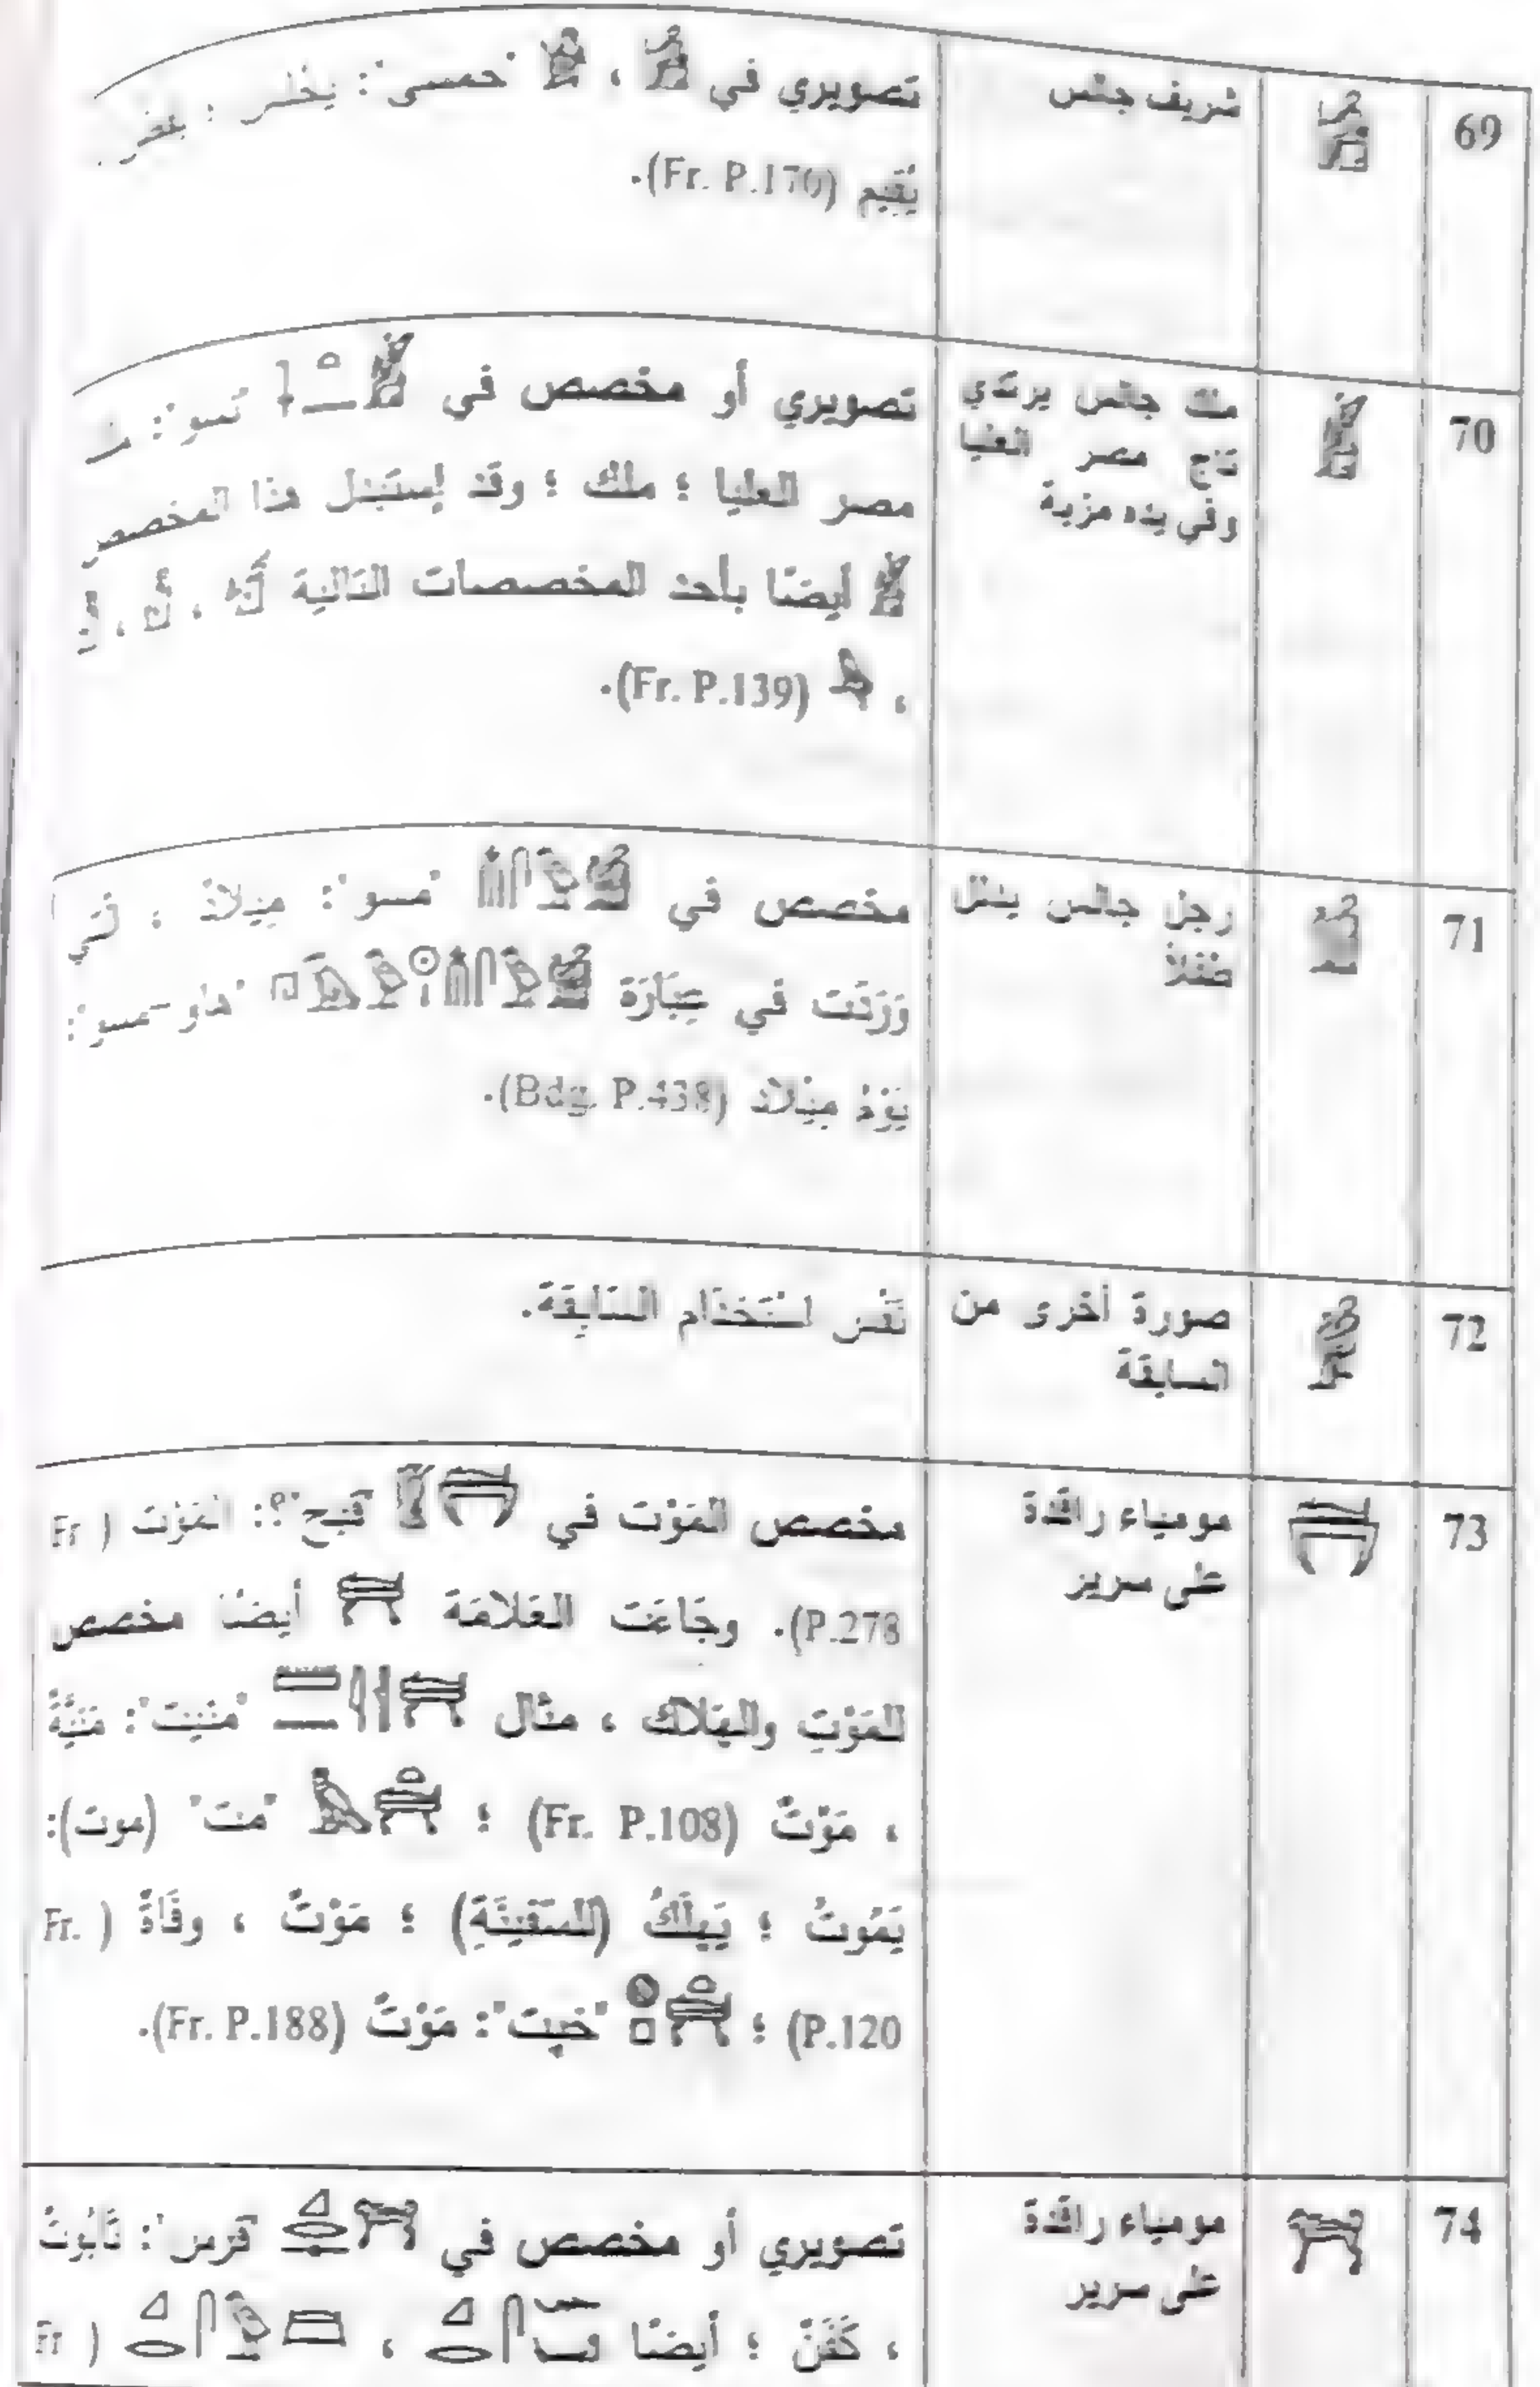 69
شريف جالس
تصويري في ، "حمسي": يجلس ؛
يُقيم (Fr. P.170).
70
ملك جالس يرتدي
تاج مصر العليا
وفي يده مزبة
تصويري أو مخصص في "نسو":
مصر العليا ؛ ملك ؛ وقد إستبدل هذا المخصص
أيضًا بأحد المخصصات التالية ، ،
، (Fr. P.139).
71
رجل جالس
طفلاً
مخصص في "مسو": مِيلادٌ ،
وَرَدَت في عِبَارَة "هاو-مسو":
يَوْمُ مِيْلاد (Bdg. P.438).
72
صورة أخرى من
السابقة
نَفْس استَخدَام السَّابِقَة.
73
مومياء راقدة
على سرير
مخصص المَوْت في "قبح"؟: المَوْت (Fr
P.278). وجَاءَت العَلامَة أيضًا مخصص
للمَوْتِ والهَلاك ، مثال "منيت": مَنِيَّةٌ
، مَوْتٌ (Fr. P.108) ؛ "مت" (موت):
يَمُوتُ ؛ يَهلَكُ (للسَّفِينَةِ) ؛ مَوْتٌ ، وفَاةٌ (Fr.
P.120) ؛ "خپت": مَوْتٌ (Fr. P.188).
74
مومياء راقدة
على سرير
تصويري أو مخصص في "قرس": تَابُوتٌ
، كَفَنٌ ؛ أيضًا ، (Fr